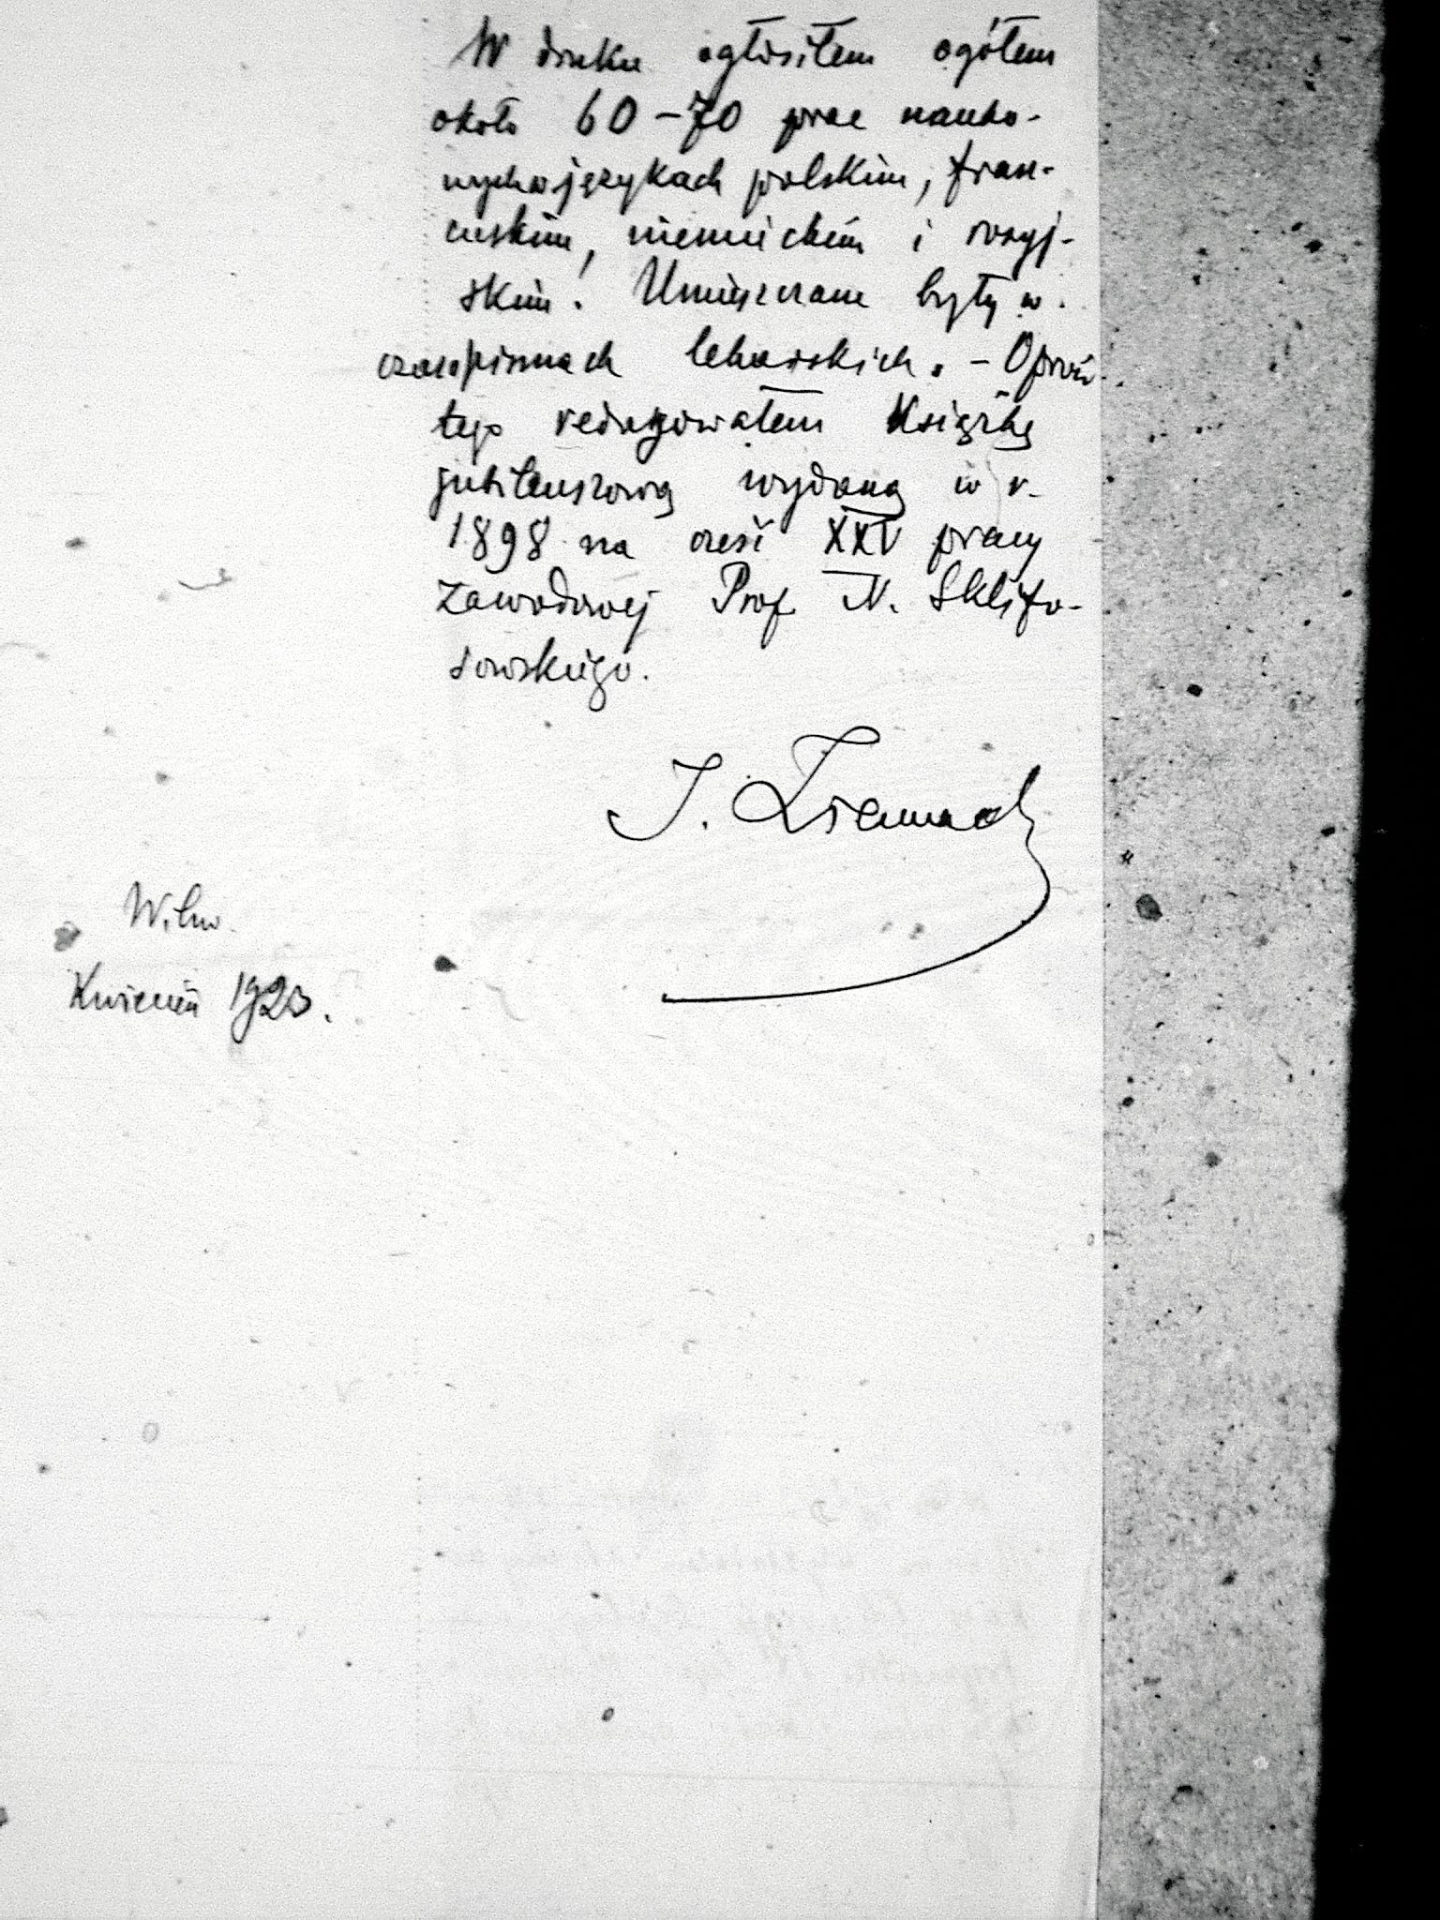 W druku ogłosiłem ogółem
około 60-70 prac nauko-
wych w językach polskim, fran-
cuskim, niemieckim i rosyj-
skim. Umieszczane były w
czasopismach lekarskich. - Oprócz
tego redagowałem Książkę
jubileuszową wydaną w r.
1898 na cześć XXV pracy
zawodowej Prof. N. Sklifo-
sowskiego.
J. Ziemacki
Wilno.
Kwiecień 1923.